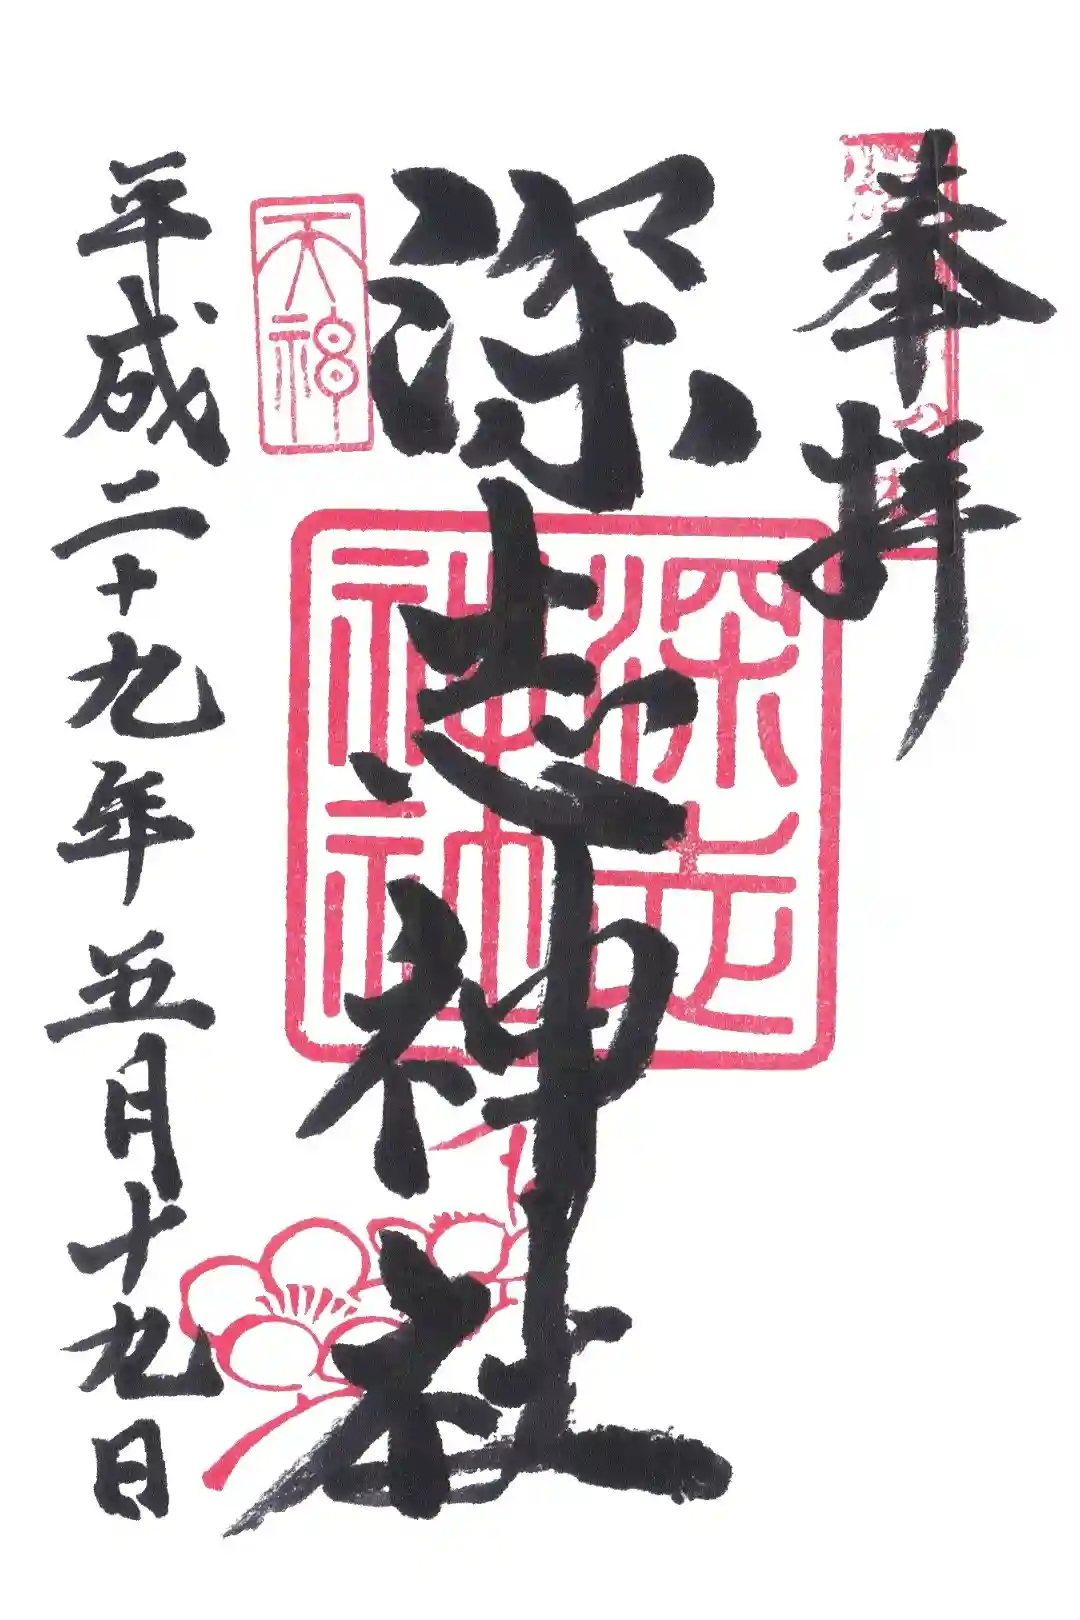 奉拝
深志神社
深志
神社
天神
平成二十九年五月十九日